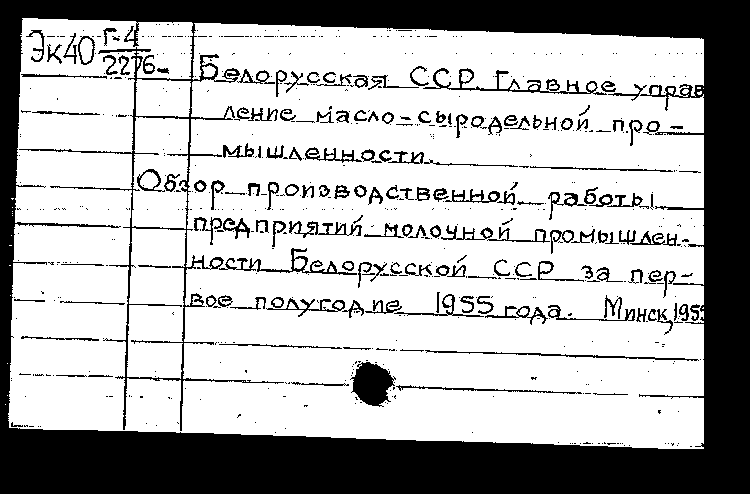 Эк40 Г-4/2276-
Белорусская ССР. Главное управ
ление масло-сыродельной про-
мышленности.
Обзор производственной работы
предприятий молочной промышлен-
ности Белорусской ССР за пер-
вое полугодие 1955 года. Минск, 1955